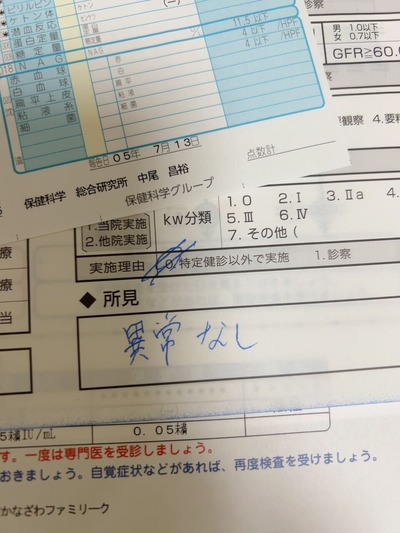 ビリルビン ケトン (ー)
ケトン体
潜血反応
蛋白定量
糖定量
NAG NAG
11.5以下
4以下 /HPF
4以下 /HPF
赤血球 赤
白血球 白
扁平上皮 扁
粘液糸 粘液
細菌 菌
報告日 05年 7月13日
点数計
保健科学 総合研究所 中尾 昌裕
保健科学グループ
男 1.0以下
女 0.7以下
GFR≧60.
観察 4.要
1.当院実施
2.他院実施
kw分類
1.0 2.Ⅰ 3.Ⅱa 4.
5.Ⅲ 6.Ⅳ
7.その他(
実施理由 0.特定健診以外で実施 1.診察
療
療
当
◆ 所見
異常なし
IU/mL 0.05
す。一度は専門医を受診しましょう。
おきましょう。自覚症状などがあれば、再度検査を受けましょう。
かなざわファミリーク